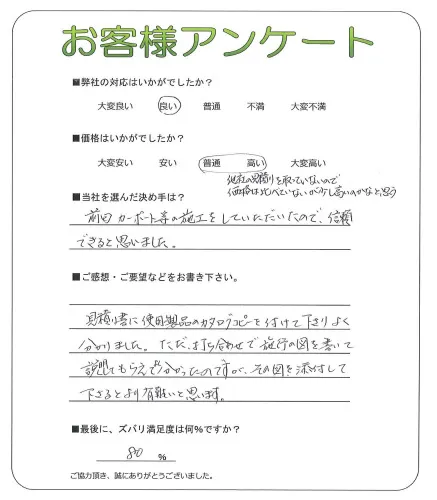 お客様アンケート
■弊社の対応はいかがでしたか？
大変良い 良い 普通 不満 大変不満
■価格はいかがでしたか？
大変安い 安い 普通 高い 大変高い
他社の見積りを取っていないので
価格は比べていないが少し高いのかなと思う
■当社を選んだ決め手は？
前回カーポート等の施工をしていただいたので、信頼
できると思いました。
■ご感想・ご要望などをお書き下さい。
見積り書に使用製品のカタログコピーを付けて下さりよく
分かりました。ただ、打ち合わせで施行の図を書いて
説明してもらえて分かったのですが、その図を添付して
下さるとより有難いと思います。
■最後に、ズバリ満足度は何%ですか？
80 %
ご協力頂き、誠にありがとうございました。